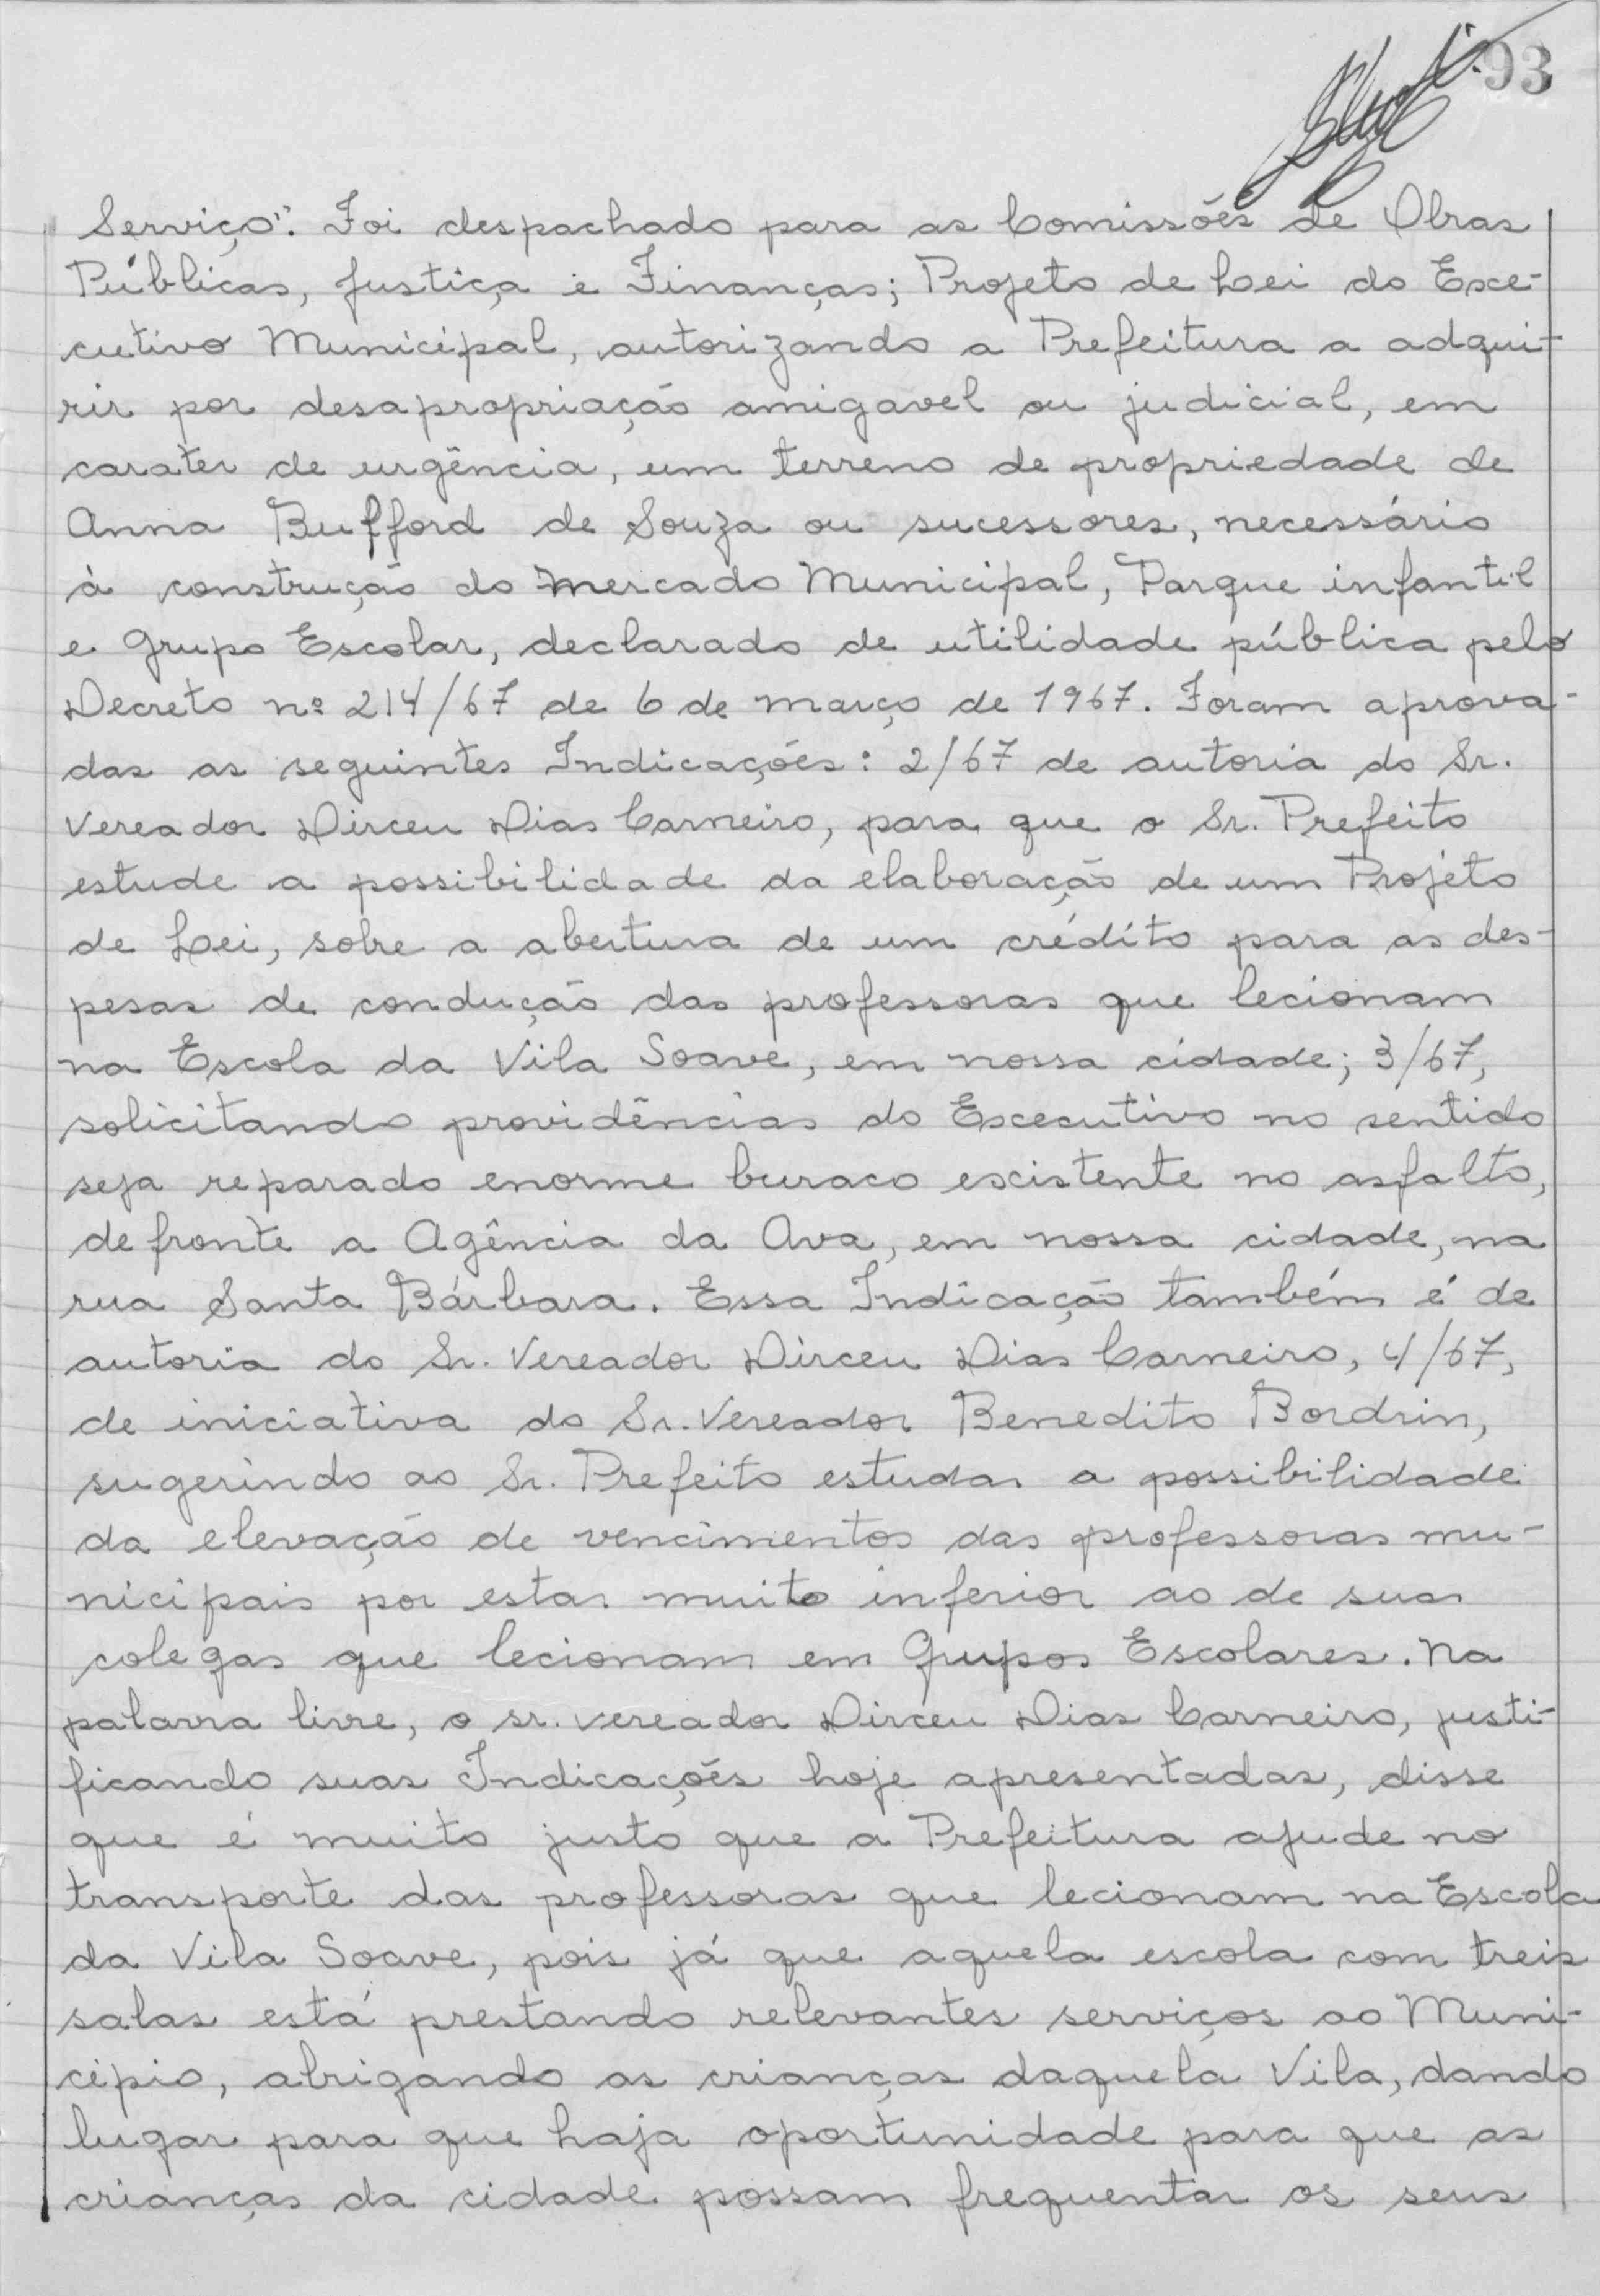 93
Serviço". Foi despachado para as Comissões de Obras
Públicas, Justiça e Finanças; Projeto de Lei do Exe-
cutivo Municipal, autorizando a Prefeitura a adqui-
rir por desapropriação amigavel ou judicial, em
carater de urgência, um terreno de propriedade de
Anna Bufford de Souza ou sucessores, necessário
à construção do Mercado Municipal, Parque infantil
e Grupo Escolar, declarado de utilidade pública pelo
Decreto nº 214/67 de 6 de março de 1967. Foram aprova-
das as seguintes Indicações: 2/67 de autoria do Sr.
Vereador Dirceu Dias Carneiro, para que o Sr. Prefeito
estude a possibilidade da elaboração de um Projeto
de Lei, sobre a abertura de um crédito para as des-
pesas de condução das professoras que lecionam
na Escola da Vila Soave, em nossa cidade; 3/67,
solicitando providências do Executivo no sentido
seja reparado enorme buraco existente no asfalto,
defronte a Agência da Ava, em nossa cidade, na
rua Santa Bárbara. Essa Indicação também é de
autoria do Sr. Vereador Dirceu Dias Carneiro, 4/67,
de iniciativa do Sr. Vereador Benedito Bordrin,
sugerindo ao Sr. Prefeito estudar a possibilidade
da elevação de vencimentos das professoras mu-
nicipais por estar muito inferior ao de suas
colegas que lecionam em Grupos Escolares. Na
palavra livre, o sr. vereador Dirceu Dias Carneiro, justi-
ficando suas Indicações hoje apresentadas, disse
que é muito justo que a Prefeitura ajude no
transporte das professoras que lecionam na Escola
da Vila Soave, pois já que aquela escola com treis
salas está prestando relevantes serviços ao Muni-
cípio, abrigando as crianças daquela Vila, dando
lugar para que haja oportunidade para que as
crianças da cidade possam frequentar os seus